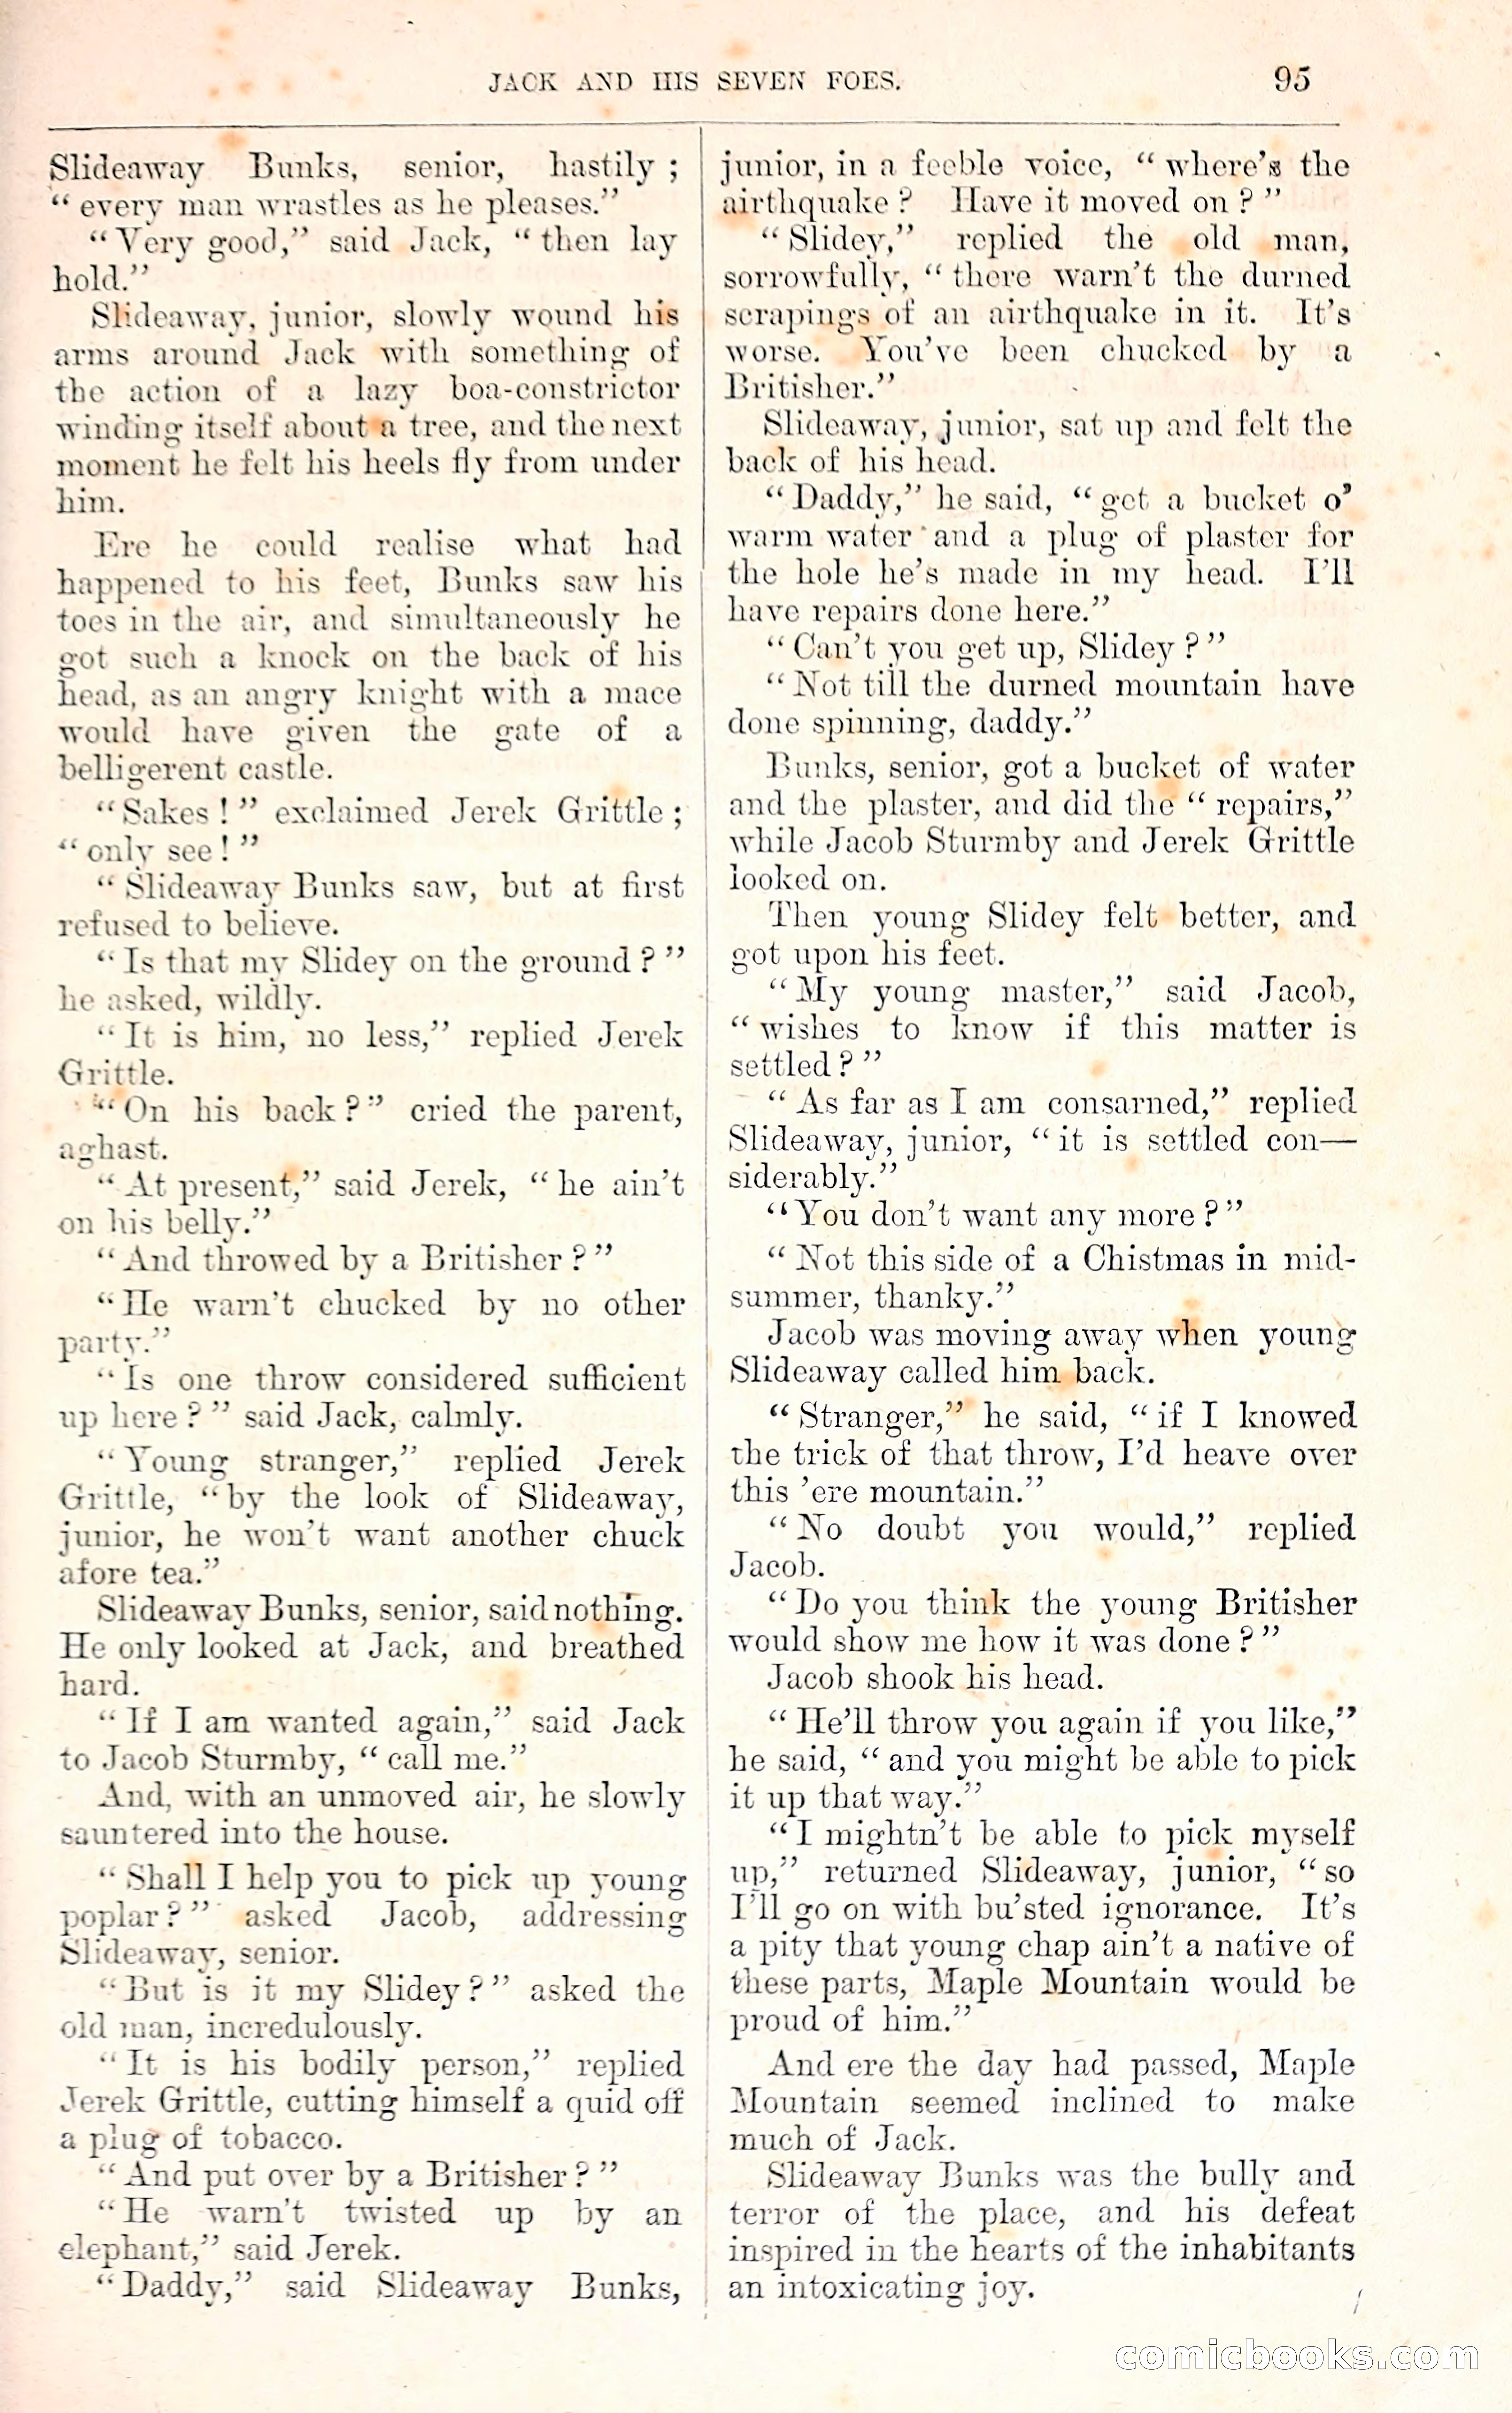 JACK AND HIS SEVEN FOES. 95
Slideaway Bunks, senior, hastily ;
“ every man wrastles as he pleases.”
“ Very good,” said Jack, “ then lay
hold.”
Slideaway, junior, slowly wound his
arms around Jack with something of
the action of a lazy boa-constrictor
winding itself about a tree, and the next
moment he felt his heels fly from under
him.
Ere he could realise what had
happened to his feet, Bunks saw his
toes in the air, and simultaneously he
got such a knock on the back of his
head, as an angry knight with a mace
would have given the gate of a
belligerent castle.
“ Sakes ! ” exclaimed Jerek Grittle ;
“ only see ! ”
“ Slideaway Bunks saw, but at first
refused to believe.
“ Is that my Slidey on the ground ? ”
he asked, wildly.
“ It is him, no less,” replied Jerek
Grittle.
“ On his back ? ” cried the parent,
aghast.
“ At present,” said Jerek, “ he ain’t
on his belly.”
“ And throwed by a Britisher ? ”
“ He warn’t chucked by no other
party.”
“ Is one throw considered sufficient
up here ? ” said Jack, calmly.
“ Young stranger,” replied Jerek
Grittle, “ by the look of Slideaway,
junior, he won’t want another chuck
afore tea.”
Slideaway Bunks, senior, said nothing.
He only looked at Jack, and breathed
hard.
“ If I am wanted again,” said Jack
to Jacob Sturmby, “ call me.”
And, with an unmoved air, he slowly
sauntered into the house.
“ Shall I help you to pick up young
poplar ? ” asked Jacob, addressing
Slideaway, senior.
“ But is it my Slidey ? ” asked the
old man, incredulously.
“ It is his bodily person,” replied
Jerek Grittle, cutting himself a quid off
a plug of tobacco.
“ And put over by a Britisher ? ”
“ He warn’t twisted up by an
elephant,” said Jerek.
“ Daddy,” said Slideaway Bunks,
junior, in a feeble voice, “ where’s the
airthquake ? Have it moved on ? ”
“ Slidey,” replied the old man,
sorrowfully, “ there warn’t the durned
scrapings of an airthquake in it. It’s
worse. You’ve been chucked by a
Britisher.”
Slideaway, junior, sat up and felt the
back of his head.
“ Daddy,” he said, “ get a bucket o’
warm water and a plug of plaster for
the hole he’s made in my head. I’ll
have repairs done here.”
“ Can’t you get up, Slidey ? ”
“ Not till the durned mountain have
done spinning, daddy.”
Bunks, senior, got a bucket of water
and the plaster, and did the “ repairs,”
while Jacob Sturmby and Jerek Grittle
looked on.
Then young Slidey felt better, and
got upon his feet.
“ My young master,” said Jacob,
“ wishes to know if this matter is
settled ? ”
“ As far as I am consarned,” replied
Slideaway, junior, “ it is settled con—
siderably.”
“ You don’t want any more ? ”
“ Not this side of a Chistmas in mid-
summer, thanky.”
Jacob was moving away when young
Slideaway called him back.
“ Stranger,” he said, “ if I knowed
the trick of that throw, I’d heave over
this ’ere mountain.”
“ No doubt you would,” replied
Jacob.
“ Do you think the young Britisher
would show me how it was done ? ”
Jacob shook his head.
“ He’ll throw you again if you like,”
he said, “ and you might be able to pick
it up that way.”
“ I mightn’t be able to pick myself
up,” returned Slideaway, junior, “ so
I’ll go on with bu’sted ignorance. It’s
a pity that young chap ain’t a native of
these parts, Maple Mountain would be
proud of him.”
And ere the day had passed, Maple
Mountain seemed inclined to make
much of Jack.
Slideaway Bunks was the bully and
terror of the place, and his defeat
inspired in the hearts of the inhabitants
an intoxicating joy.
comicbooks.com